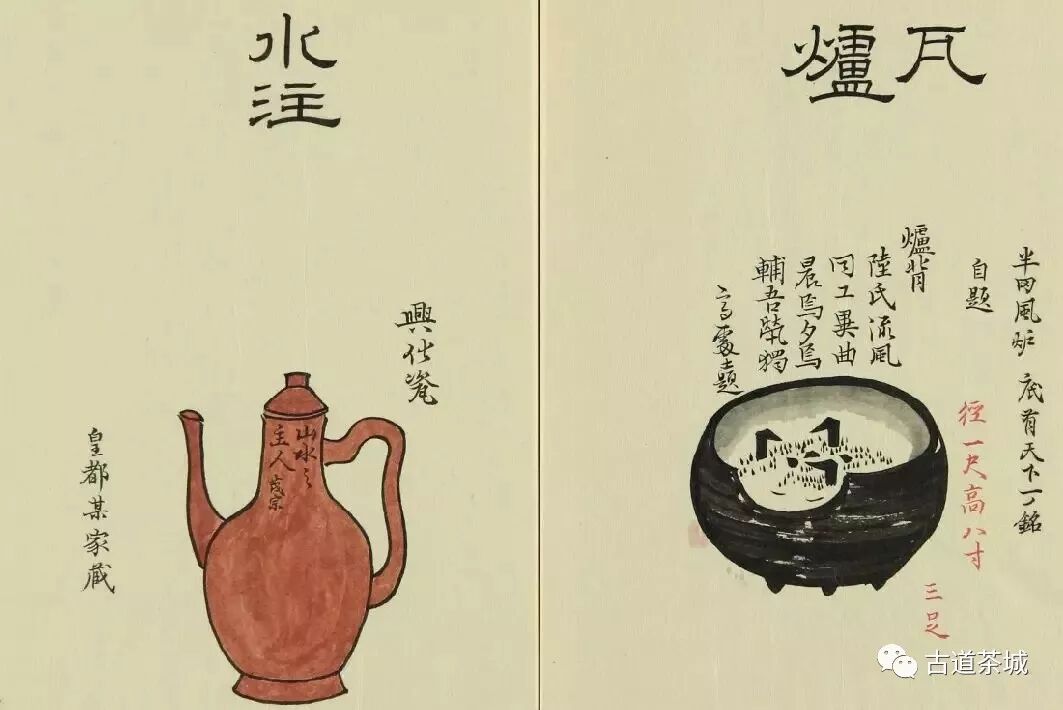 瓦爐
半田風炉 底有天下一ノ銘
徑一尺高八寸
三足
自題
爐背
陸氏流風
同工異曲
晨焉夕焉
輔吾煢獨
高處士題
水注
山水之
主人
皇都某家蔵
古道茶城